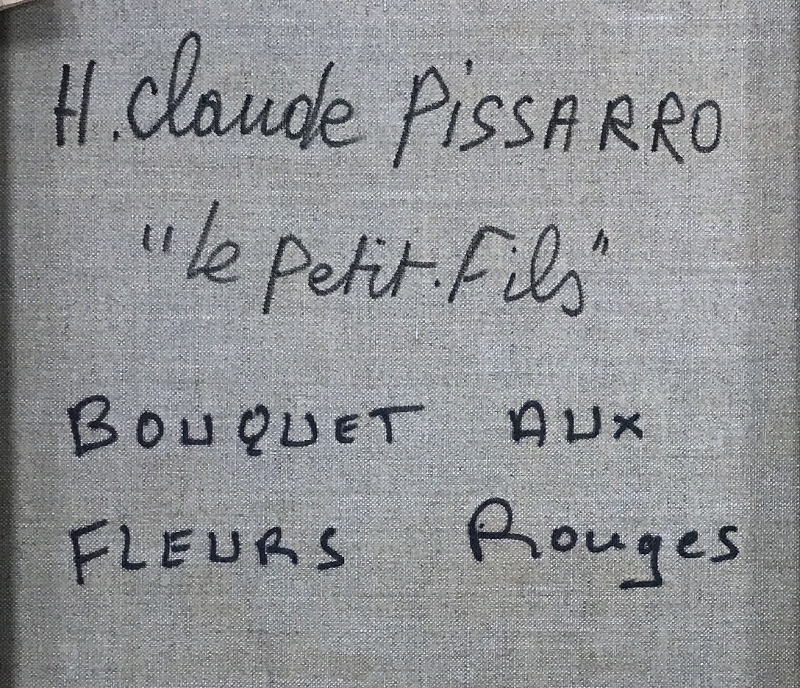 H. Claude PISSARRO
"Le Petit. Fils"
BOUQUET AUX
FLEURS Rouges